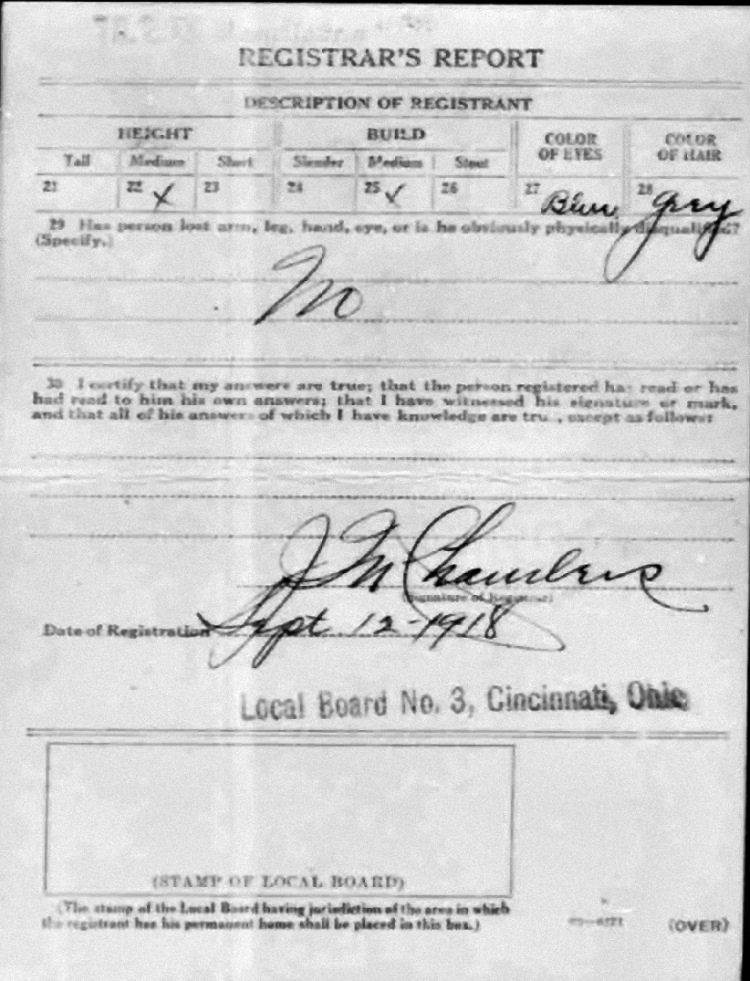 REGISTRAR'S REPORT
DESCRIPTION OF REGISTRANT
HEIGHT BUILD COLOR OF EYES COLOR OF HAIR
Tall Medium Short Slender Medium Stout
21 22 X 23 24 25 X 26 27 Blue 28 Grey
29 Has person lost arm, leg, hand, eye, or is he obviously physically disqualified?
(Specify.)
No
30 I certify that my answers are true; that the person registered has read or has
had read to him his own answers; that I have witnessed his signature or mark,
and that all of his answers of which I have knowledge are true, except as follows:
J M Chambers
(Signature of Registrar)
Date of Registration Sept. 12-1918
Local Board No. 3, Cincinnati, Ohio
(STAMP OF LOCAL BOARD)
(The stamp of the Local Board having jurisdiction of the area in which
the registrant has his permanent home shall be placed in this box.)
(OVER)